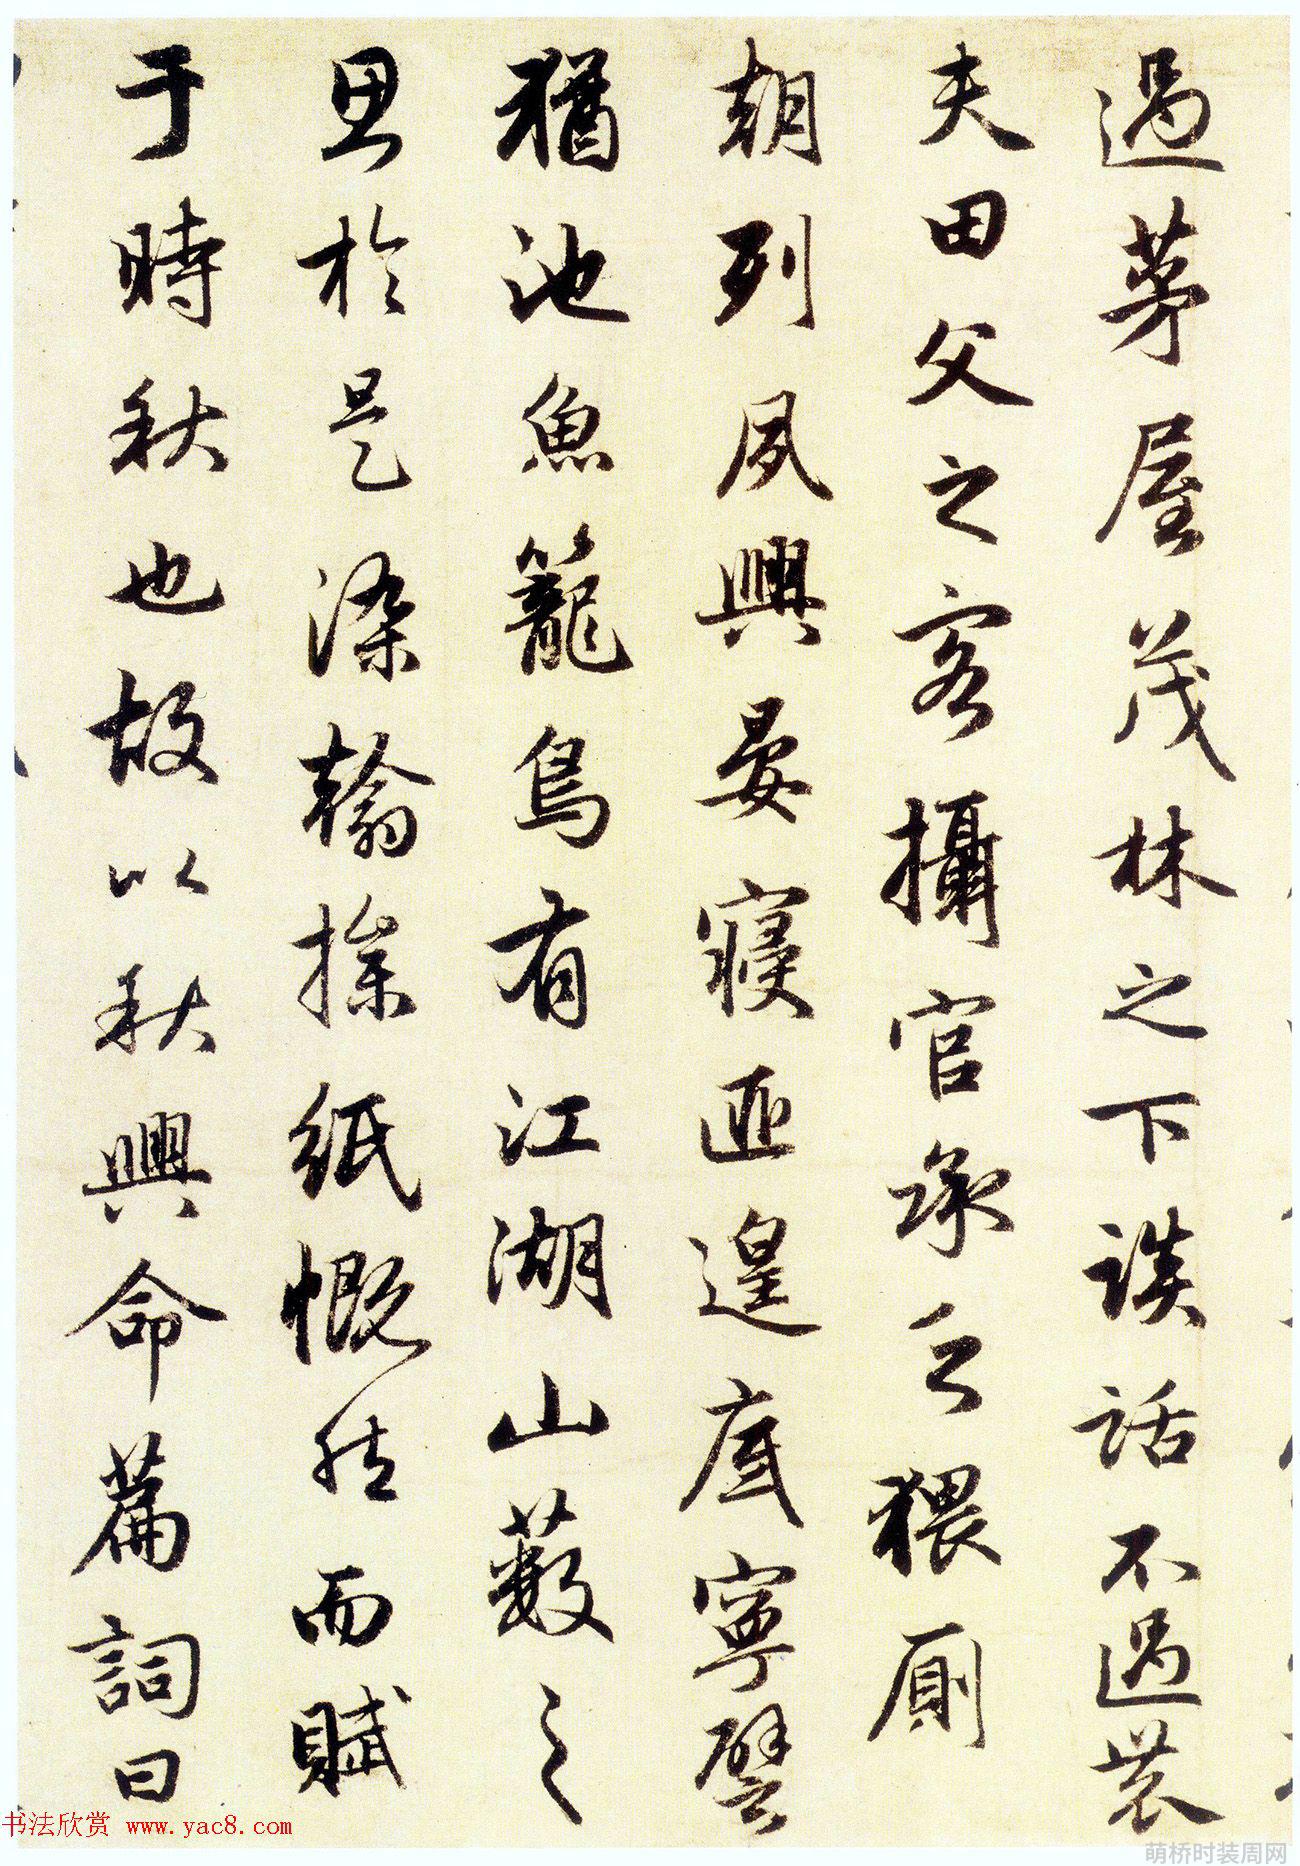 過茅屋茂林之下談話不過農
夫田父之客攝官承乏猥厠
朝列夙興晏寢匪遑底寧譬
猶池魚籠鳥有江湖山藪之
思於是染翰操紙慨然而賦
于時秋也故以秋興命篇詞曰
书法欣赏 www.yac8.com
萌桥时装周网